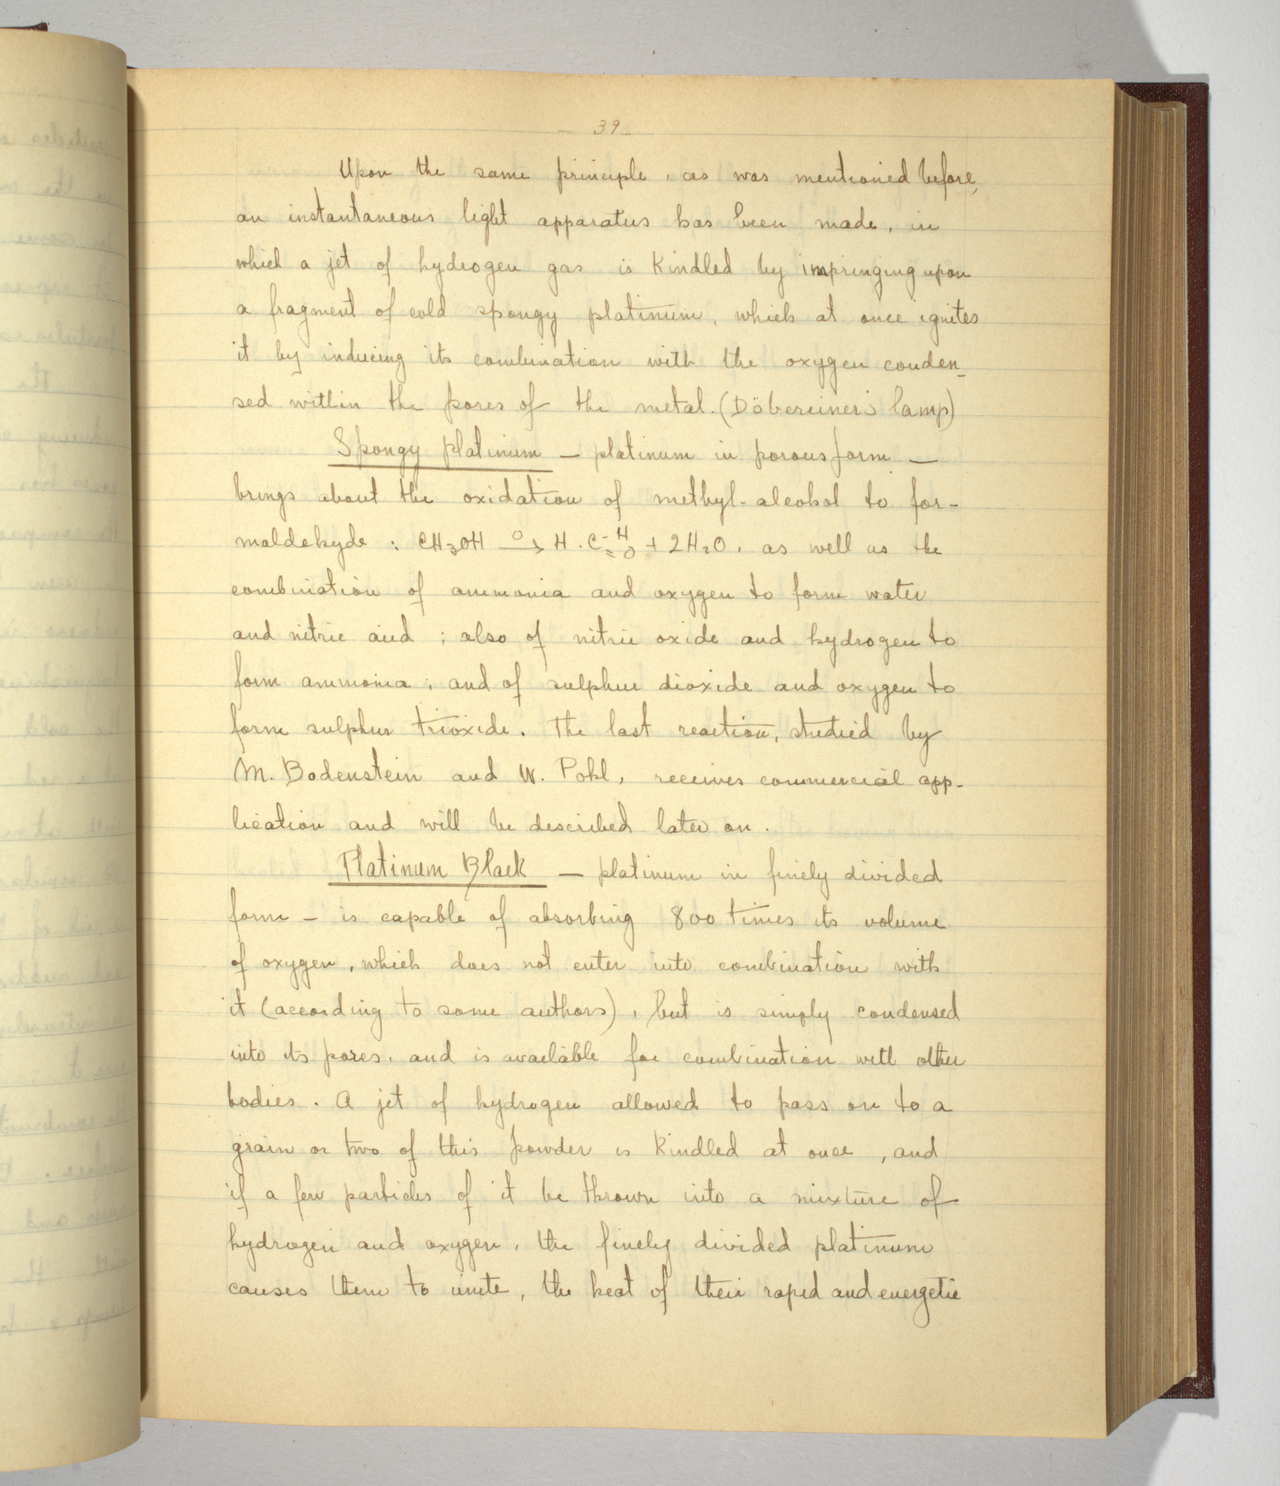 — 39 —
Upon the same principle, as was mentioned before,
an instantaneous light apparatus has been made, in
which a jet of hydrogen gas is kindled by impringing upon
a fragment of cold spongy platinum, which at once ignites
it by inducing its combination with the oxygen conden-
sed within the pores of the metal. (Döbereiner's lamp)
Spongy platinum — platinum in porous form —
brings about the oxidation of methyl-alcohol to for-
maldehyde : CH₃OH —O→ H.C-H=O + 2H₂O, as well as the
combination of ammonia and oxygen to form water
and nitric acid ; also of nitric oxide and hydrogen to
form ammonia ; and of sulphur dioxide and oxygen to
form sulphur trioxide. The last reaction, studied by
M. Bodenstein and W. Pohl, receives commercial app-
lication and will be described later on.
Platinum Black — platinum in finely divided
form — is capable of absorbing 800 times its volume
of oxygen, which does not enter into combination with
it (according to some authors), but is simply condensed
into its pores, and is available for combination with other
bodies. A jet of hydrogen allowed to pass on to a
grain or two of this powder is kindled at once, and
if a few particles of it be thrown into a mixture of
hydrogen and oxygen, the finely divided platinum
causes them to unite, the heat of their rapid and energetic